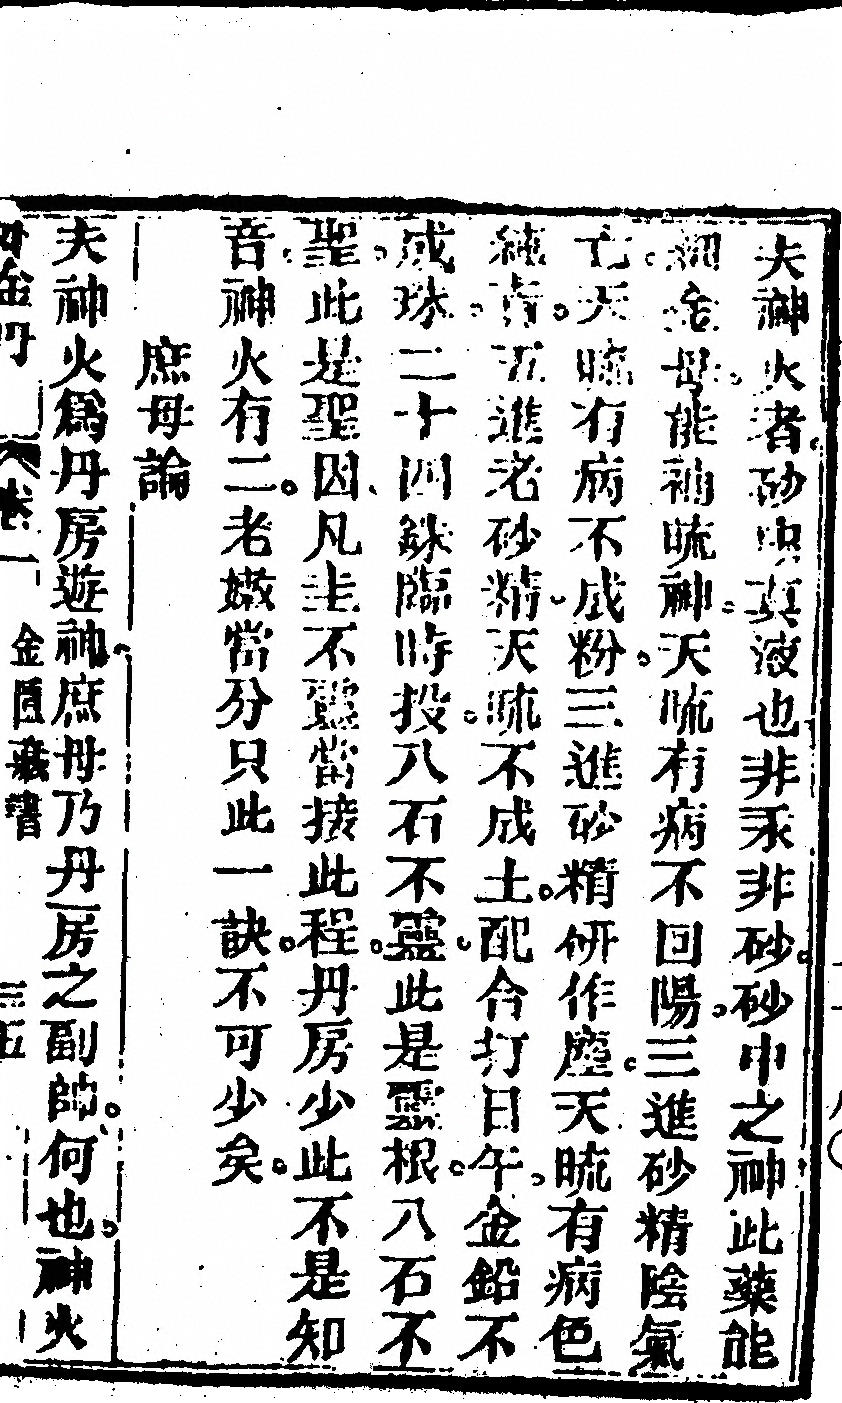 夫神火者砂中真液也非汞非砂砂中之神此藥能
細金母能補硫神天硫有病不回陽三進砂精陰氣
亡天硫有病不成粉三進砂精研作塵天硫有病色
純青五進老砂精天硫不成土配合打日午金鉛不
成珠二十四銖臨時投八石不靈此是靈根八石不
聖此是聖因凡圭不靈當接此程丹房少此不是知
音神火有二老嫩當分只此一訣不可少矣
庶母論
夫神火為丹房遊神庶母乃丹房之副帥何也神火
卷一 金匱藏書 三五